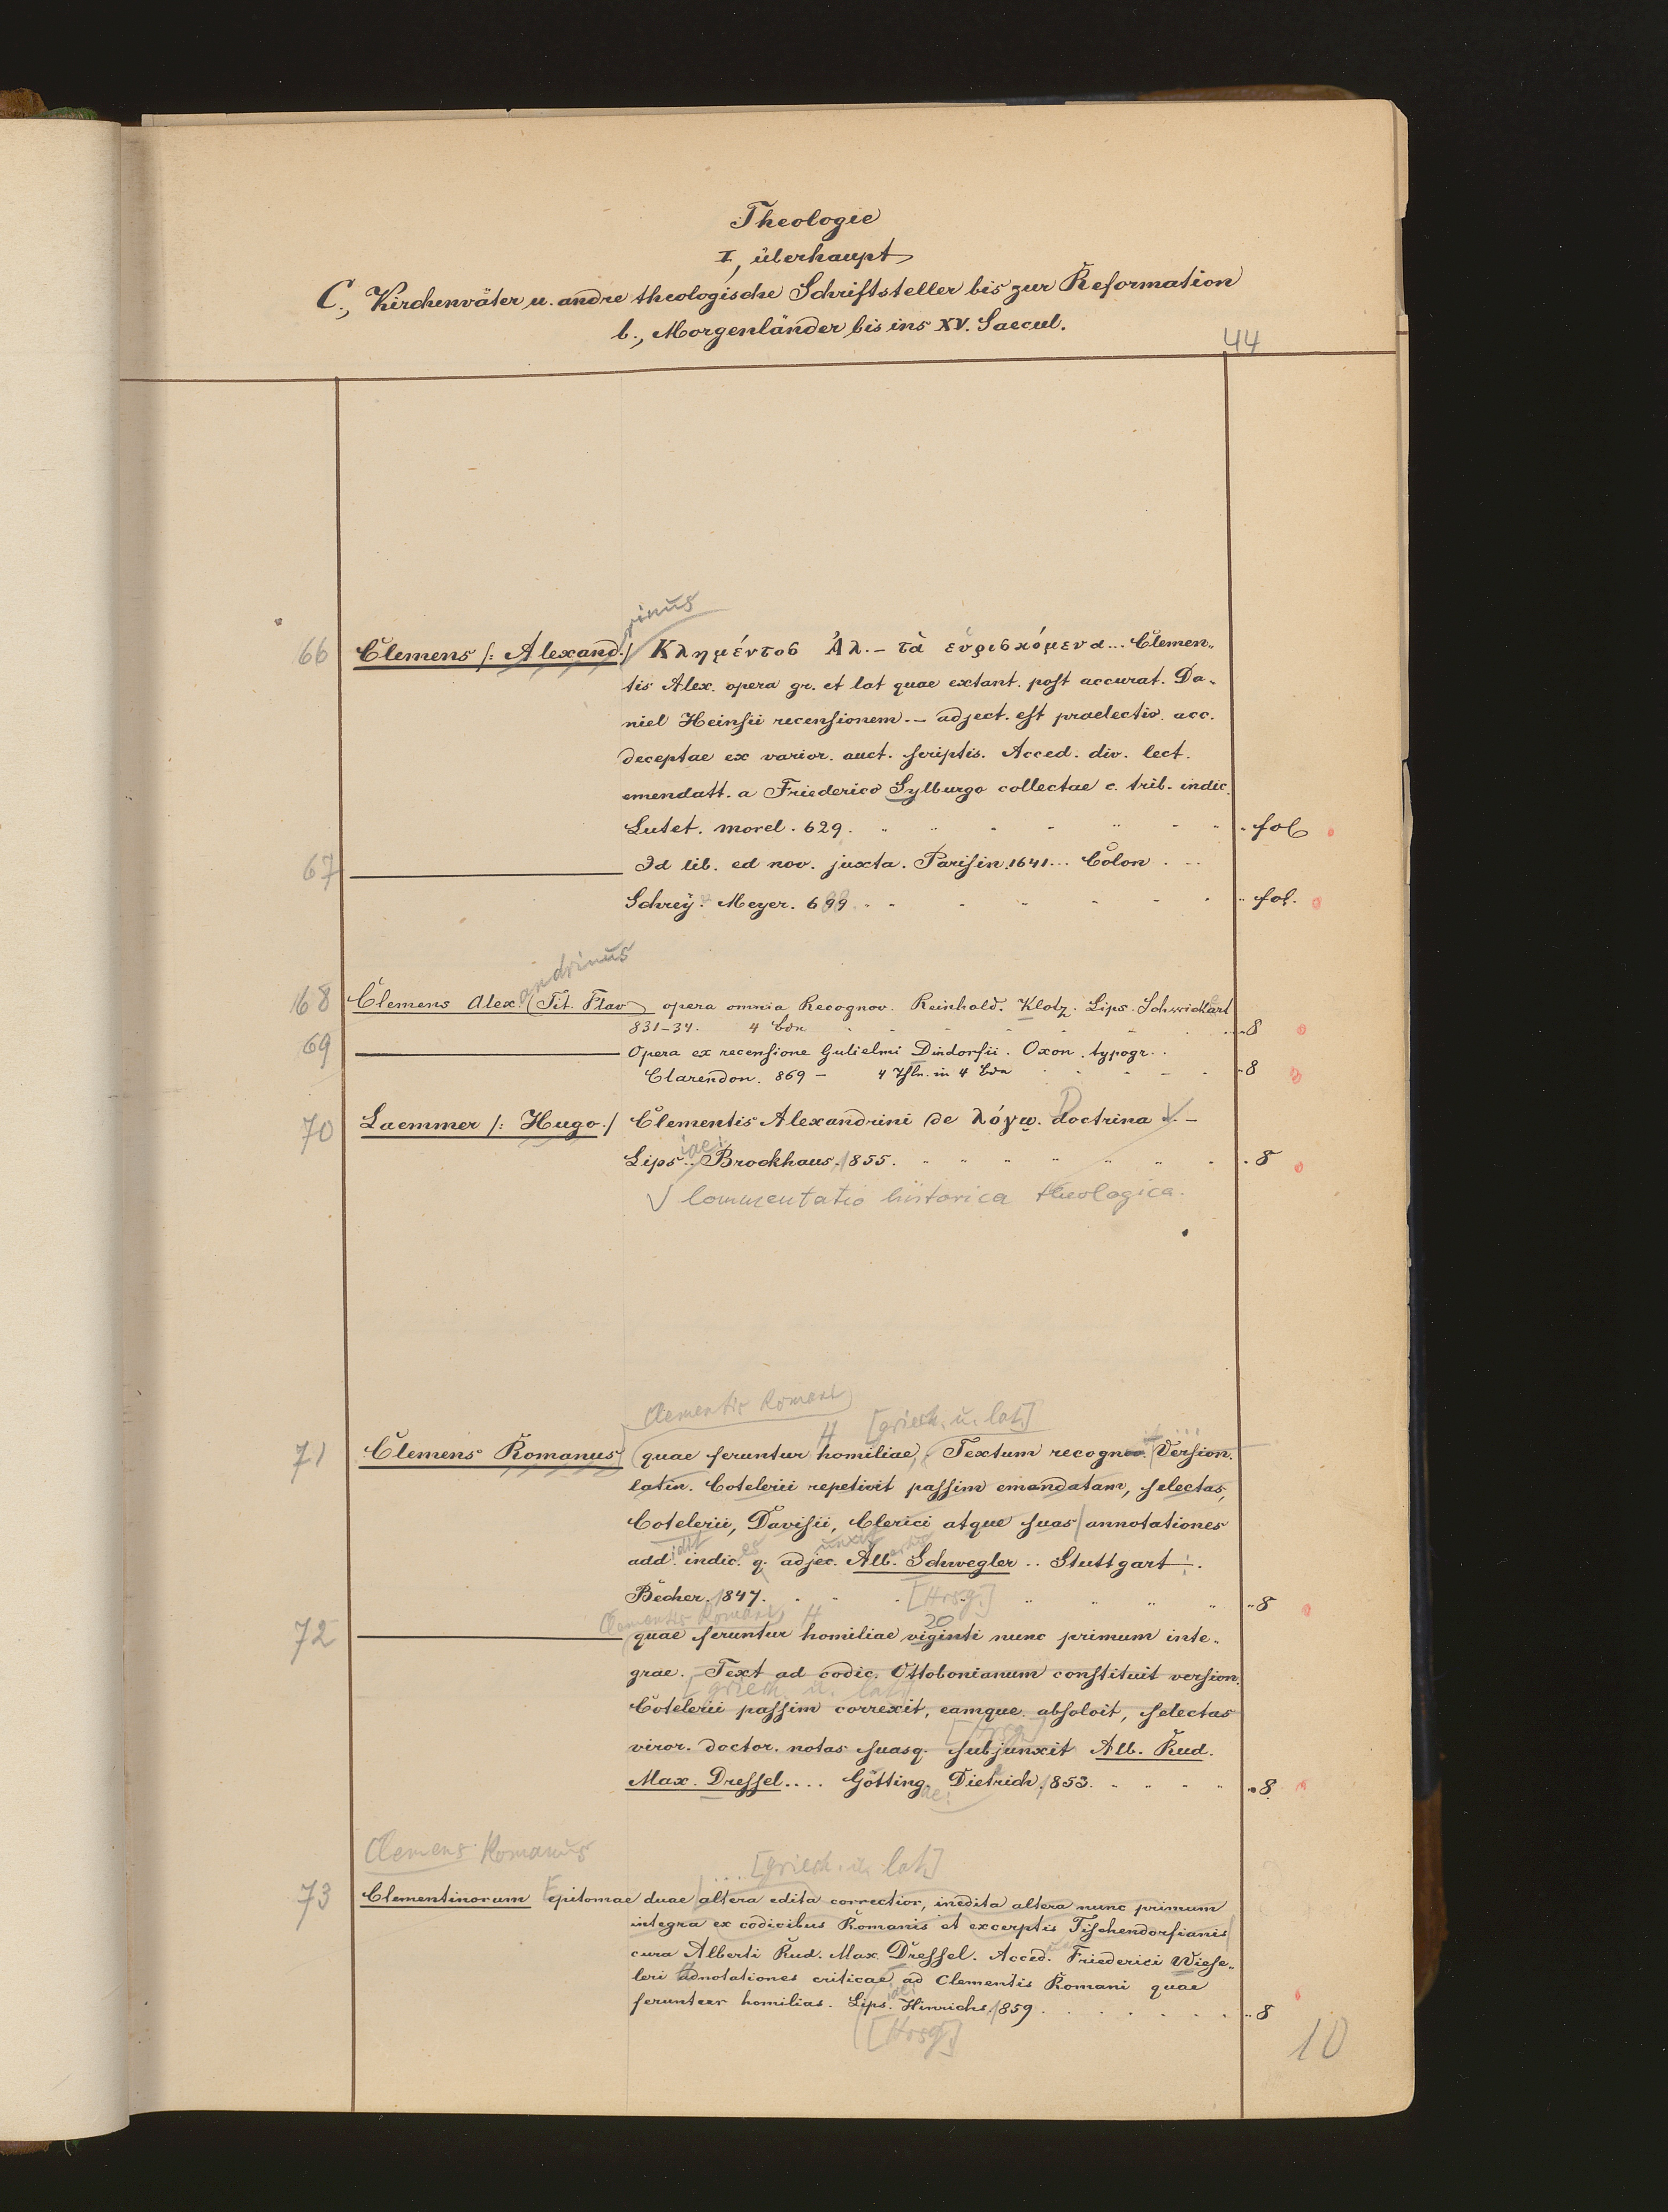 Theologie
I, überhaupt
C., Kirchenväter u. andre theologische Schriftsteller bis zur Reformation
b., Morgenländer bis ins XV. Saecul.
44
rinus
66 Clemens /: Alexand./ Κλημέντοσ Ἀλ. – τὰ εὑρισκόμενα... Clemen„
tis Alex. opera gr. et lat quae extant. post accurat. Da„
niel Heinsii recensionem. – adject. est praelectio. acc.
deceptae ex varior. auct. scriptis. Acced. div. lect.
emendatt. a Friederico Sylburgo collectae c. trib. indic.
Lutet. morel. 629. fol
67 Id lib. ed nov. juxta. Parisin. 1641... Colon. ..
Schrey. u Meyer. 688. fol.
andrinus
68 Clemens Alex. (Tit. Flav) opera omnia Recognov. Reinhold. Klotz. Lips. Schwickert
831–34. 4 Bdn 8
69 Opera ex recensione Gulielmi Dindorfii. Oxon. typogr..
Clarendon. 869 – 4 Thle. in 4 Bdn 8
70 Laemmer /: Hugo./ Clementis Alexandrini de λόγῳ. Doctrina √. –
Lipsiae: Brockhaus. 1855. 8
√ Commentatio historica theologica.
Clementis Romani
H [griech. u. lat.]
71 Clemens Romanus quae feruntur homiliae, Textum recogno. Version.
latin. Cotelerii repetivit passim emendatam, selectas,
Cotelerii, Davisii, Clerici atque suas annotationes
add. indic. q. adjec. Alb. Schwegler .. Stuttgart:.
Becher. 1847. [Hrsg.] 8
Clementis Romani H 20
72 quae feruntur homiliae viginti nunc primum inte„
grae. Text ad codic. Ottobonianum constituit version.
[griech. u. lat.]
Cotelerii passim correxit, eamque. absolvit, selectas
[Hrsg.]
viror. doctor. notas suasq. subjunxit Alb. Rud.
Max. Dressel.... Göttingae: Dietrich. 1853. 8.
Clemens Romanus
.... [griech. u. lat.]
73 Clementinorum Epitomae duae altera edita correctior, inedita altera nunc primum
integra ex codicibus Romanis et excerptis Tischendorfianis
cura Alberti Rud. Max. Dressel. Acced. Friederici Wiese„
leri adnotationes criticae ad Clementis Romani quae
feruntur homilias. Lipsiae: Hinrichs. 1859. 8
[Hrsg.]
10